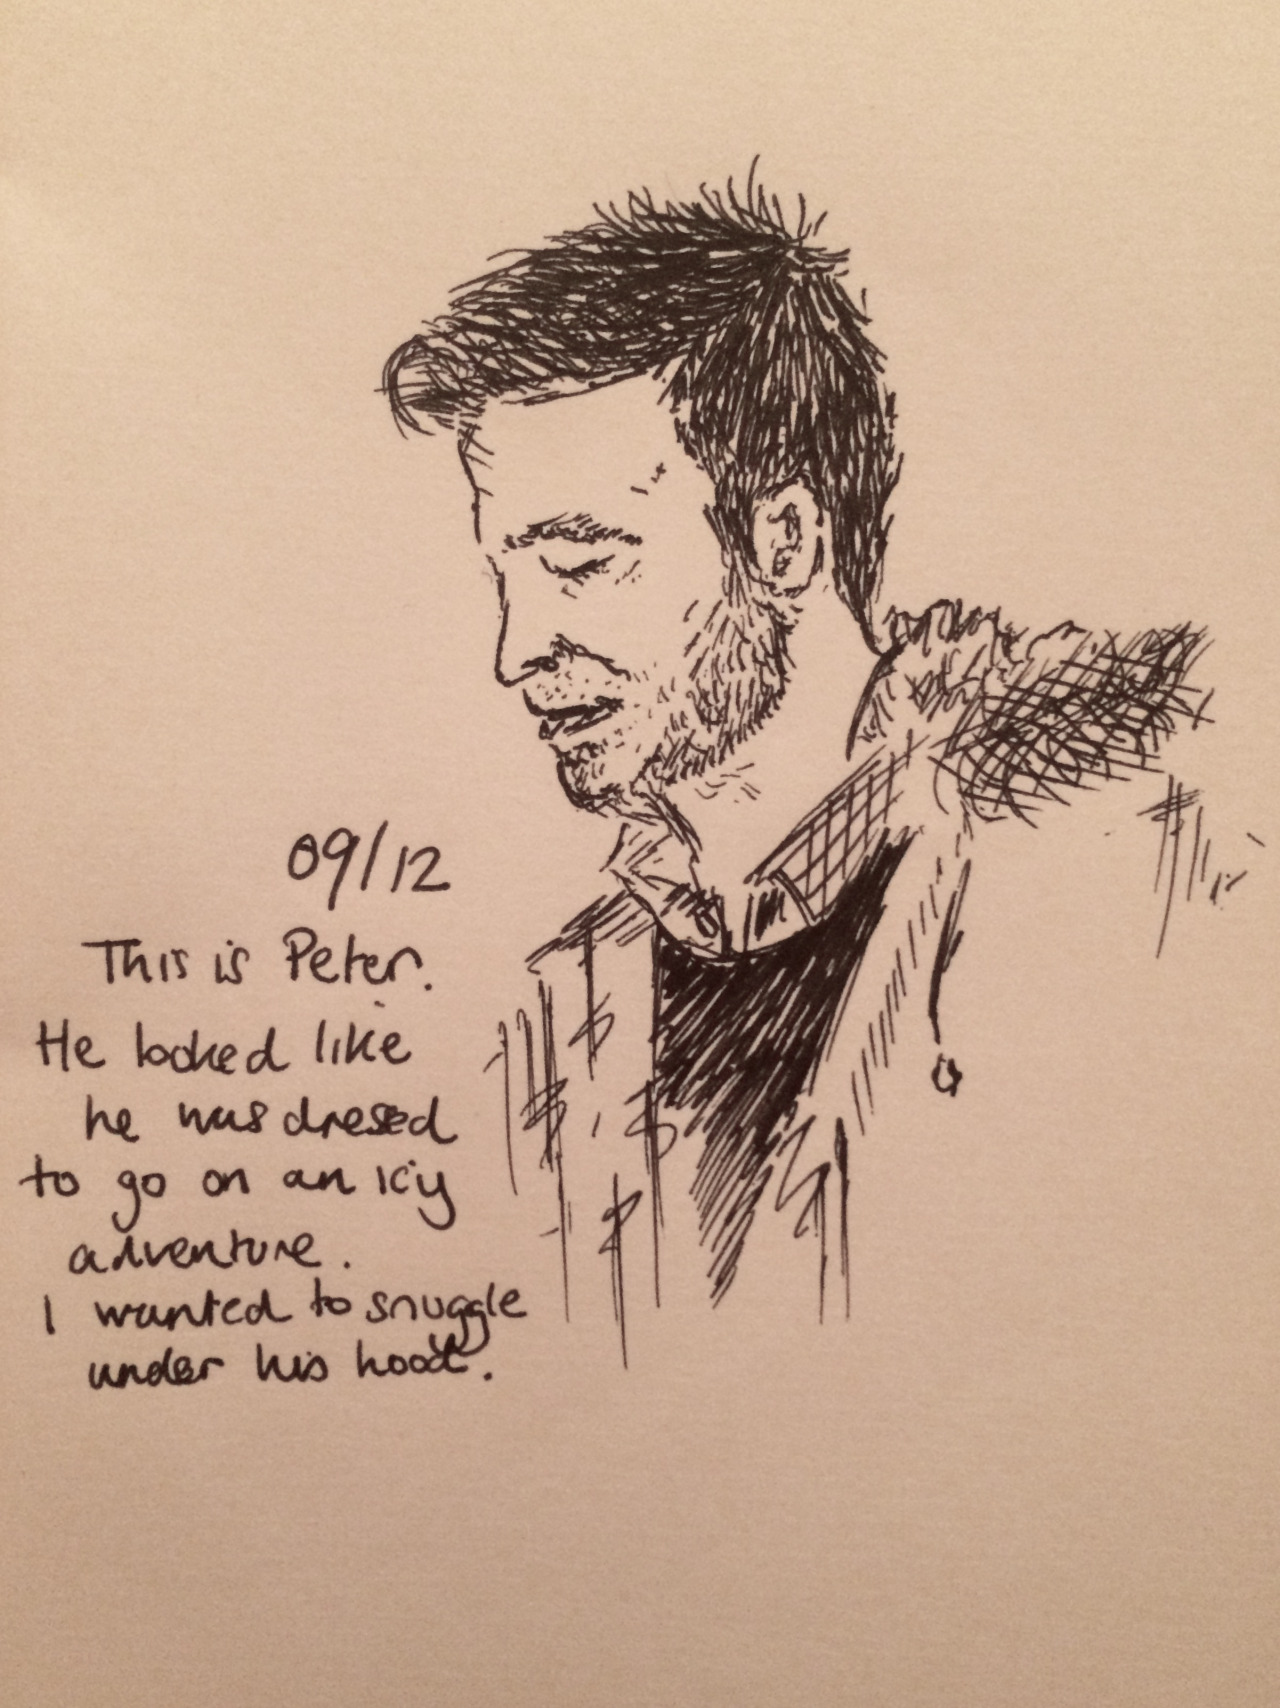 09/12
This is Peter.
He looked like
he was dressed
to go on an icy
adventure.
I wanted to snuggle
under his hood.